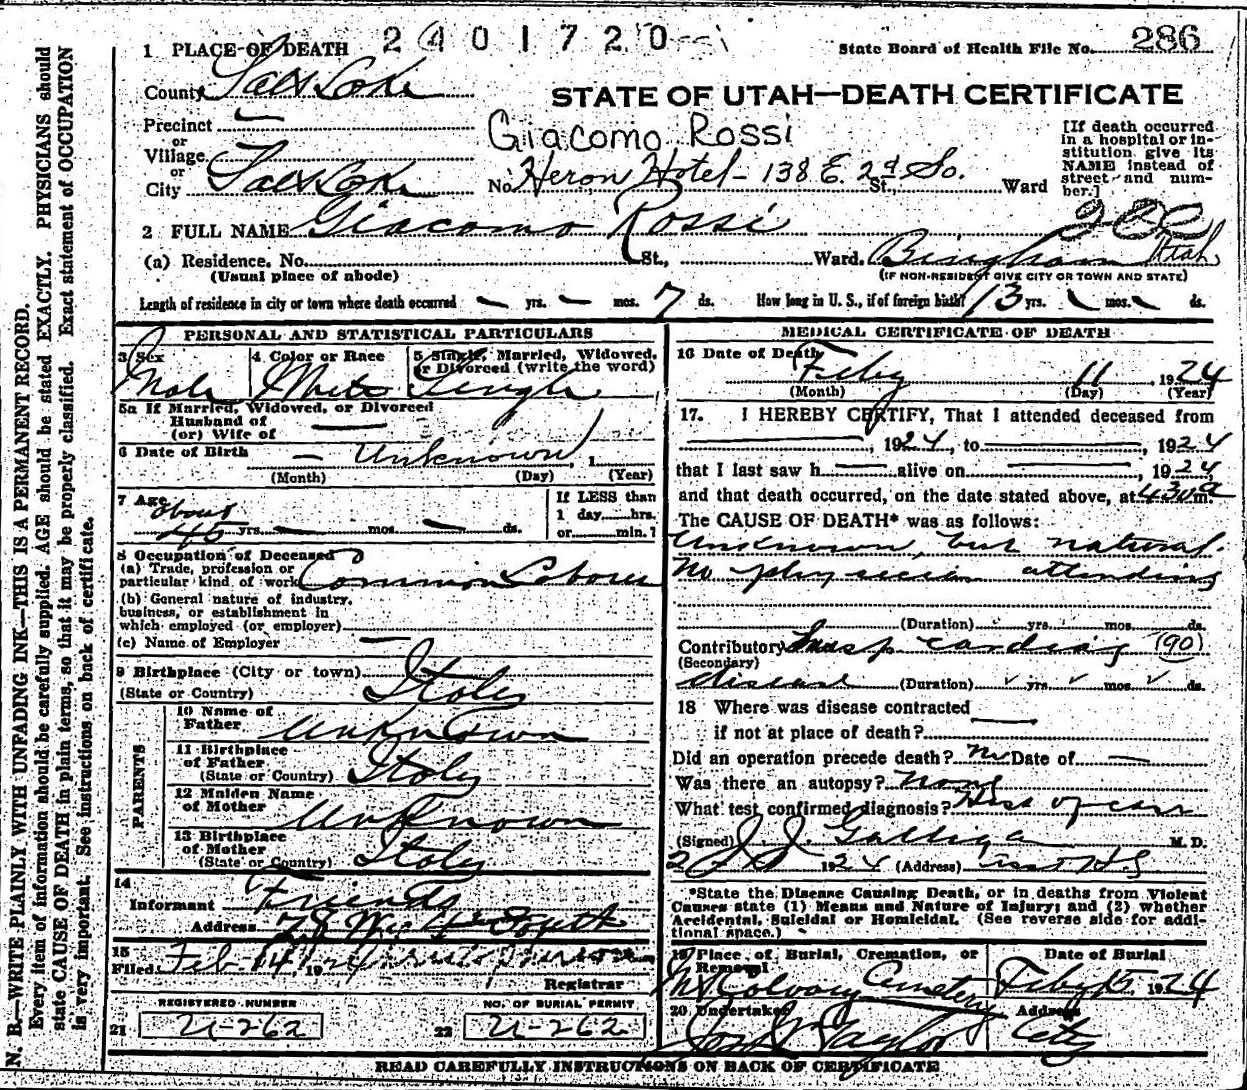 1 PLACE OF DEATH 2401720 State Board of Health File No. 286
County Salt Lake
STATE OF UTAH—DEATH CERTIFICATE
Precinct —
or
Village
or
City Salt Lake
Giacomo Rossi
No. Heron Hotel - 138 E. 2d So. St., Ward
[If death occurred
in a hospital or in-
stitution give its
NAME instead of
street and num-
ber.]
2 FULL NAME Giacomo Rossi
(a) Residence. No. St., Ward. Bingham Utah
(Usual place of abode) (IF NON-RESIDENT GIVE CITY OR TOWN AND STATE)
Length of residence in city or town where death occurred — yrs. — mos. 7 ds. How long in U. S., if of foreign birth? 13 yrs. mos. ds.
PERSONAL AND STATISTICAL PARTICULARS
3 Sex 4 Color or Race 5 Single, Married, Widowed,
or Divorced (write the word)
Male White Single
5a If Married, Widowed, or Divorced
Husband of
(or) Wife of —
6 Date of Birth — Unknown, 1
(Month) (Day) (Year)
7 Age about
45 yrs. — mos. — ds.
If LESS than
1 day hrs.
or min. ?
8 Occupation of Deceased
(a) Trade, profession or
particular kind of work Common Laborer
(b) General nature of industry,
business, or establishment in
which employed (or employer)
(c) Name of Employer —
9 Birthplace (City or town) Italy
(State or Country)
PARENTS
10 Name of
Father Unknown
11 Birthplace
of Father Italy
(State or Country)
12 Maiden Name
of Mother Unknown
13 Birthplace
of Mother Italy
(State or Country)
14
Informant Friends
Address
15
Filed Feb. 14, 1924
Registrar
REGISTERED NUMBER NO. OF BURIAL PERMIT
21 U-262 22 U-262
MEDICAL CERTIFICATE OF DEATH
16 Date of Death
Feby 11, 1924
(Month) (Day) (Year)
17. I HEREBY CERTIFY, That I attended deceased from
—, 1924, to —, 1924
that I last saw h— alive on —, 1924,
and that death occurred, on the date stated above, at 430 a m.
The CAUSE OF DEATH* was as follows:
Unknown, but natural.
No physician attending
(Duration) yrs. mos. ds.
Contributory cardiac (90)
(Secondary)
disease (Duration) yrs. mos. ds.
18 Where was disease contracted
if not at place of death? —
Did an operation precede death? No Date of —
Was there an autopsy? None
What test confirmed diagnosis? Hist of case
(Signed) M. D.
1924 (Address)
*State the Disease Causing Death, or in deaths from Violent
Causes state (1) Means and Nature of Injury; and (2) whether
Accidental, Suicidal or Homicidal. (See reverse side for addi-
tional space.)
19 Place of Burial, Cremation, or
Removal Date of Burial
Mt Calvary Cemetery Feby 15, 1924
20 Undertaker Address
Taylor City
READ CAREFULLY INSTRUCTIONS ON BACK OF CERTIFICATE
N. B.—WRITE PLAINLY WITH UNFADING INK—THIS IS A PERMANENT RECORD.
Every item of information should be carefully supplied. AGE should be stated EXACTLY. PHYSICIANS should
state CAUSE OF DEATH in plain terms, so that it may be properly classified. Exact statement of OCCUPATION
is very important. See instructions on back of certificate.